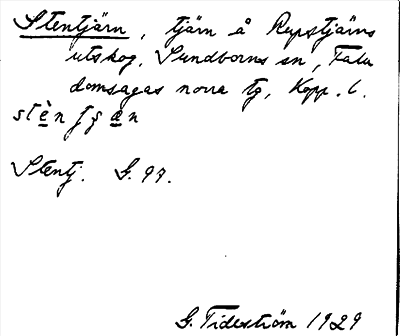 Stentjärn, tjärn å Repstjärns
utskog, Sundborns sn, Falu
domsagas norra tg, Kopp. l.
stèn ʃʃæn
Stentj. G. 97.
G. Tideström 1929